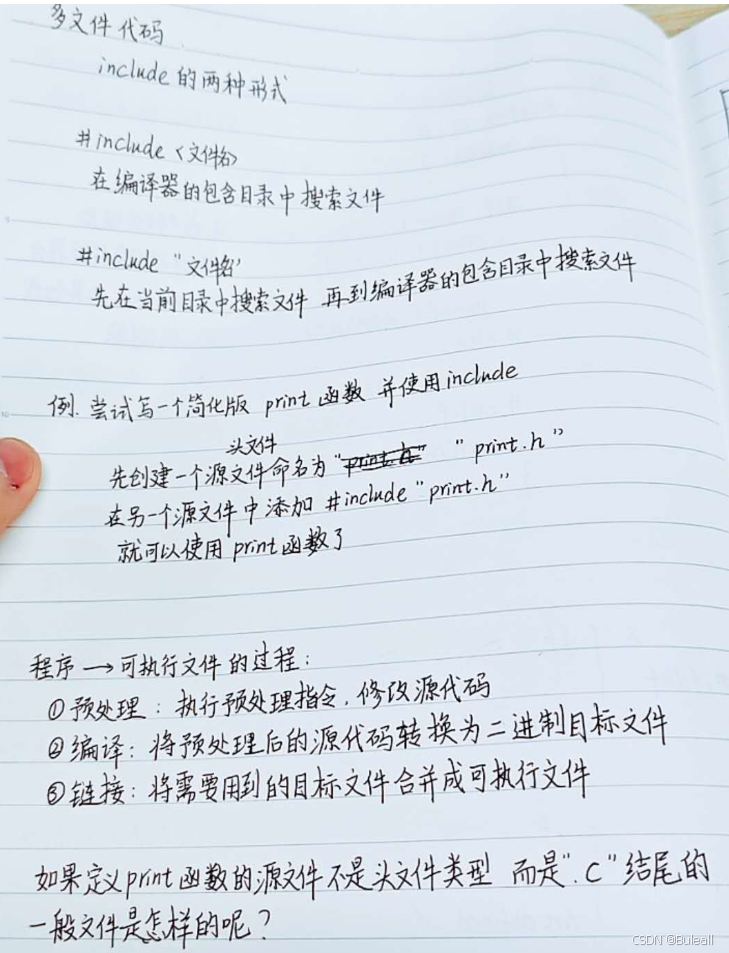 多文件代码
include的两种形式
#include <文件名>
在编译器的包含目录中搜索文件
#include "文件名"
先在当前目录中搜索文件 再到编译器的包含目录中搜索文件
例. 尝试写一个简化版 print 函数 并使用include
头文件
先创建一个源文件命名为 "print.h" "print.h"
在另一个源文件中添加 #include "print.h"
就可以使用 print函数了
程序→可执行文件的过程:
①预处理: 执行预处理指令, 修改源代码
②编译: 将预处理后的源代码转换为二进制目标文件
③链接: 将需要用到的目标文件合并成可执行文件
如果定义print函数的源文件不是头文件类型 而是".C"结尾的
一般文件是怎样的呢?
CSDN @Buleall